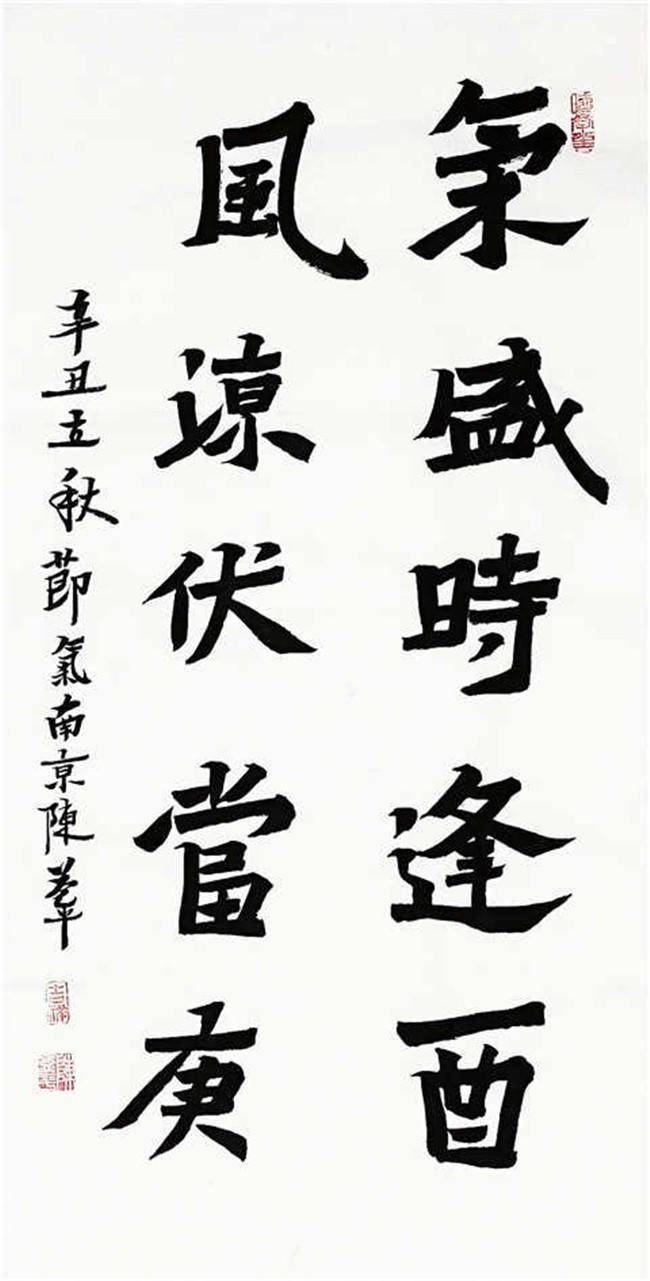 氣盛時逢酉
風凉伏當庚
辛丑立秋莭氣南京陳